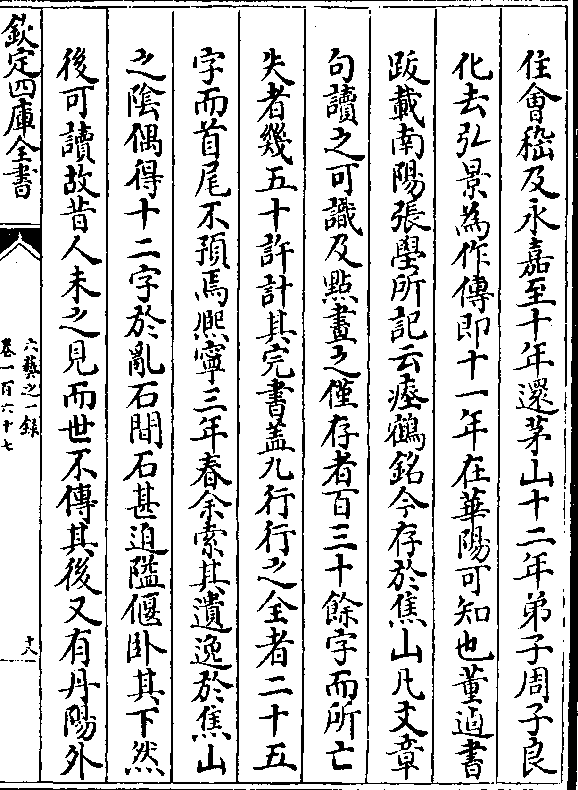 住會稽及永嘉至十年還茅山十二年弟子周子良
化去弘景為作傳即十一年在華陽可知也董逌書
䟦載南陽張學所記云瘞鶴銘今存於焦山凡文章
句讀之可識及㸃畫之僅存者百三十餘字而所亡
失者幾五十許計其完書蓋九行行之全者二十五
字而首尾不預焉熈寧三年春余索其遺逸於焦山
之隂偶得十二字於亂石間石甚迫隘偃卧其下然
後可讀故昔人未之見而世不傳其後又有丹陽外
欽定四庫全書
六藝之一録
卷一百六十七
十八